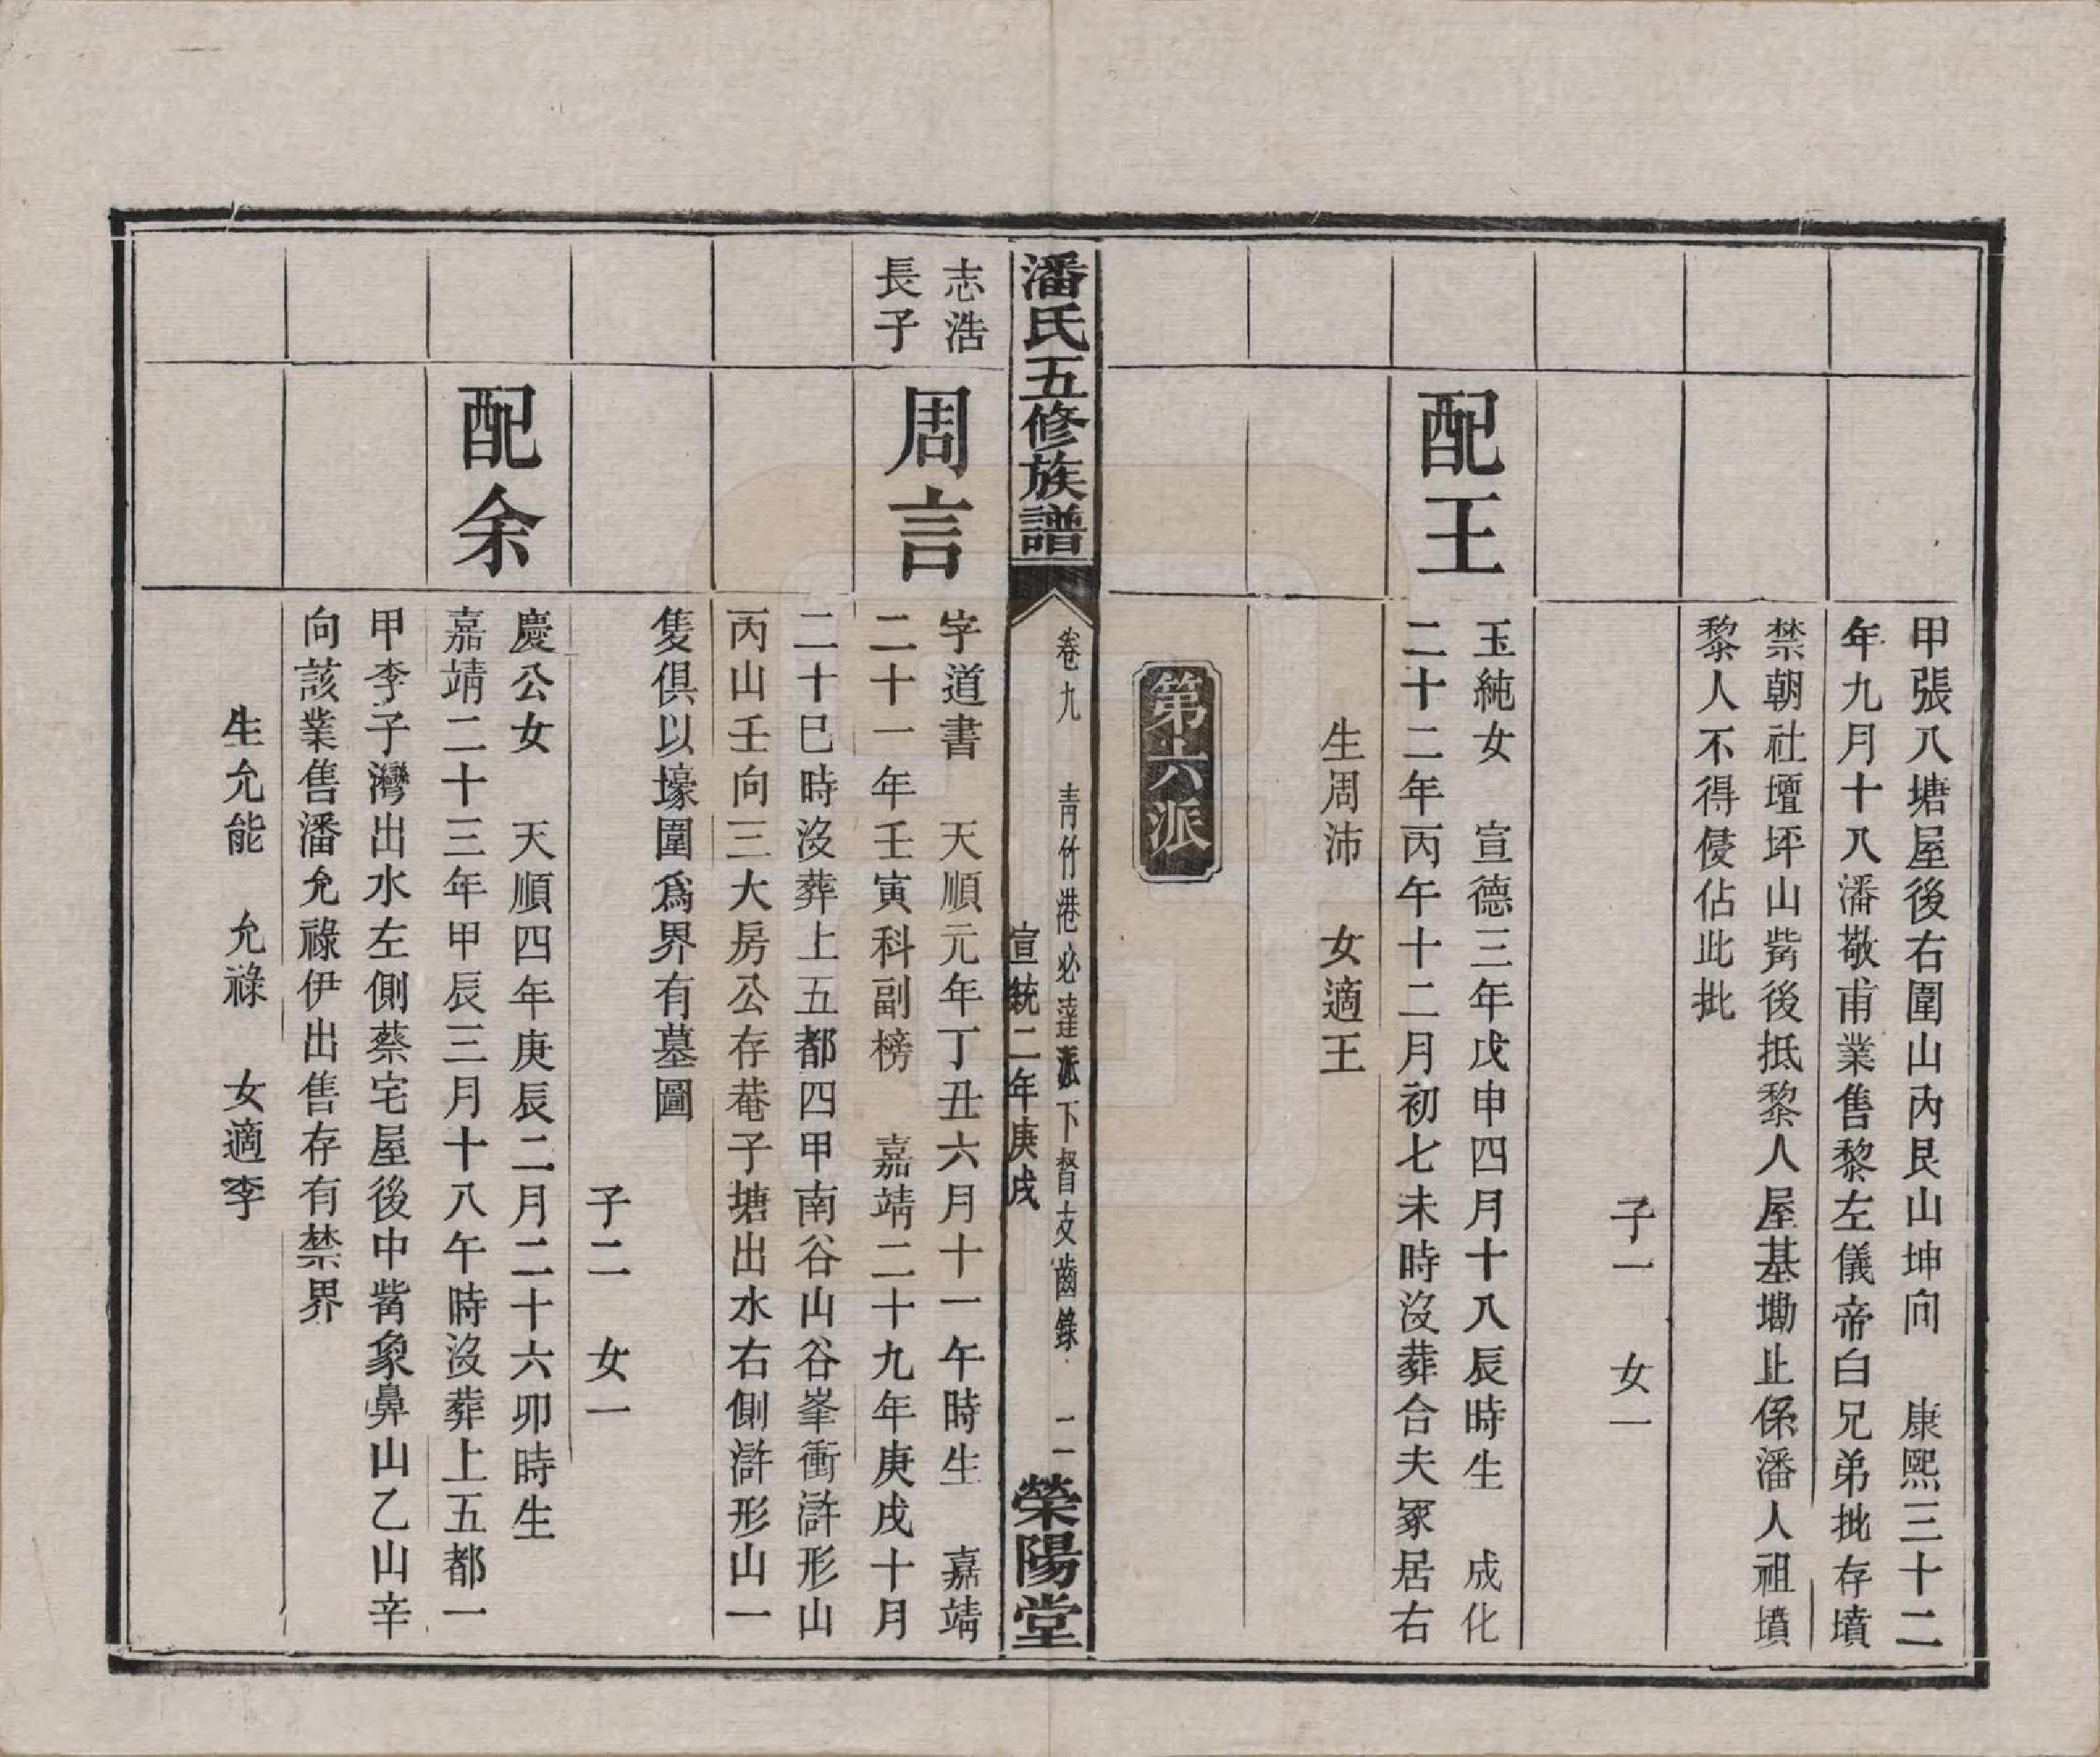 甲張八塘屋後右圍山內艮山坤向　康熙三十二
年九月十八潘敬甫業售黎左儀帝白兄弟批存墳
禁朝社壇坪山嘴後抵黎人屋基墈止係潘人祖墳
黎人不得侵佔此批
子一　女一
配王
玉純女　宣德三年戊申四月十八辰時生　成化
二十二年丙午十二月初七未時沒葬合夫冢居右
生周沛　女適王
第六派
潘氏五修族譜
卷九　青竹港必達派下督支齒錄　二
宣統二年庚戌
榮陽堂
志浩
長子
周言
字道書　天順元年丁丑六月十一午時生　嘉靖
二十一年壬寅科副榜　嘉靖二十九年庚戌十月
二十巳時沒葬上五都四甲南谷山谷峯衝滸形山
丙山壬向三大房公存菴子塘出水右側滸形山一
隻俱以壕圍爲界有墓圖
子二　女一
配余
慶公女　天順四年庚辰二月二十六卯時生
嘉靖二十三年甲辰三月十八午時沒葬上五都一
甲李子灣出水左側蔡宅屋後中嘴象鼻山乙山辛
向該業售潘允祿伊出售存有禁界
生允能　允祿　女適李